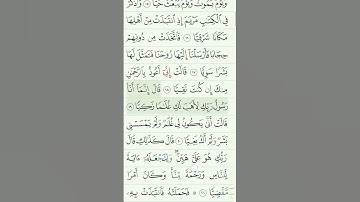 وَيَوْمَ يَمُوتُ وَيَوْمَ يُبْعَثُ حَيًّا ١٥ وَاذْكُرْ
فِي الْكِتَٰبِ مَرْيَمَ إِذِ انتَبَذَتْ مِنْ أَهْلِهَا
مَكَانًا شَرْقِيًّا ١٦ فَاتَّخَذَتْ مِن دُونِهِمْ
حِجَابًا فَأَرْسَلْنَا إِلَيْهَا رُوحَنَا فَتَمَثَّلَ لَهَا
بَشَرًا سَوِيًّا ١٧ قَالَتْ إِنِّي أَعُوذُ بِالرَّحْمَٰنِ
مِنكَ إِن كُنتَ تَقِيًّا ١٨ قَالَ إِنَّمَا أَنَا
رَسُولُ رَبِّكِ لِأَهَبَ لَكِ غُلَٰمًا زَكِيًّا ١٩
قَالَتْ أَنَّىٰ يَكُونُ لِي غُلَٰمٌ وَلَمْ يَمْسَسْنِي
بَشَرٌ وَلَمْ أَكُ بَغِيًّا ٢٠ قَالَ كَذَٰلِكِ قَالَ
رَبُّكِ هُوَ عَلَيَّ هَيِّنٌ وَلِنَجْعَلَهُ ءَايَةً
لِّلنَّاسِ وَرَحْمَةً مِّنَّا وَكَانَ أَمْرًا
مَّقْضِيًّا ٢١ ۞ فَحَمَلَتْهُ فَانتَبَذَتْ بِهِ